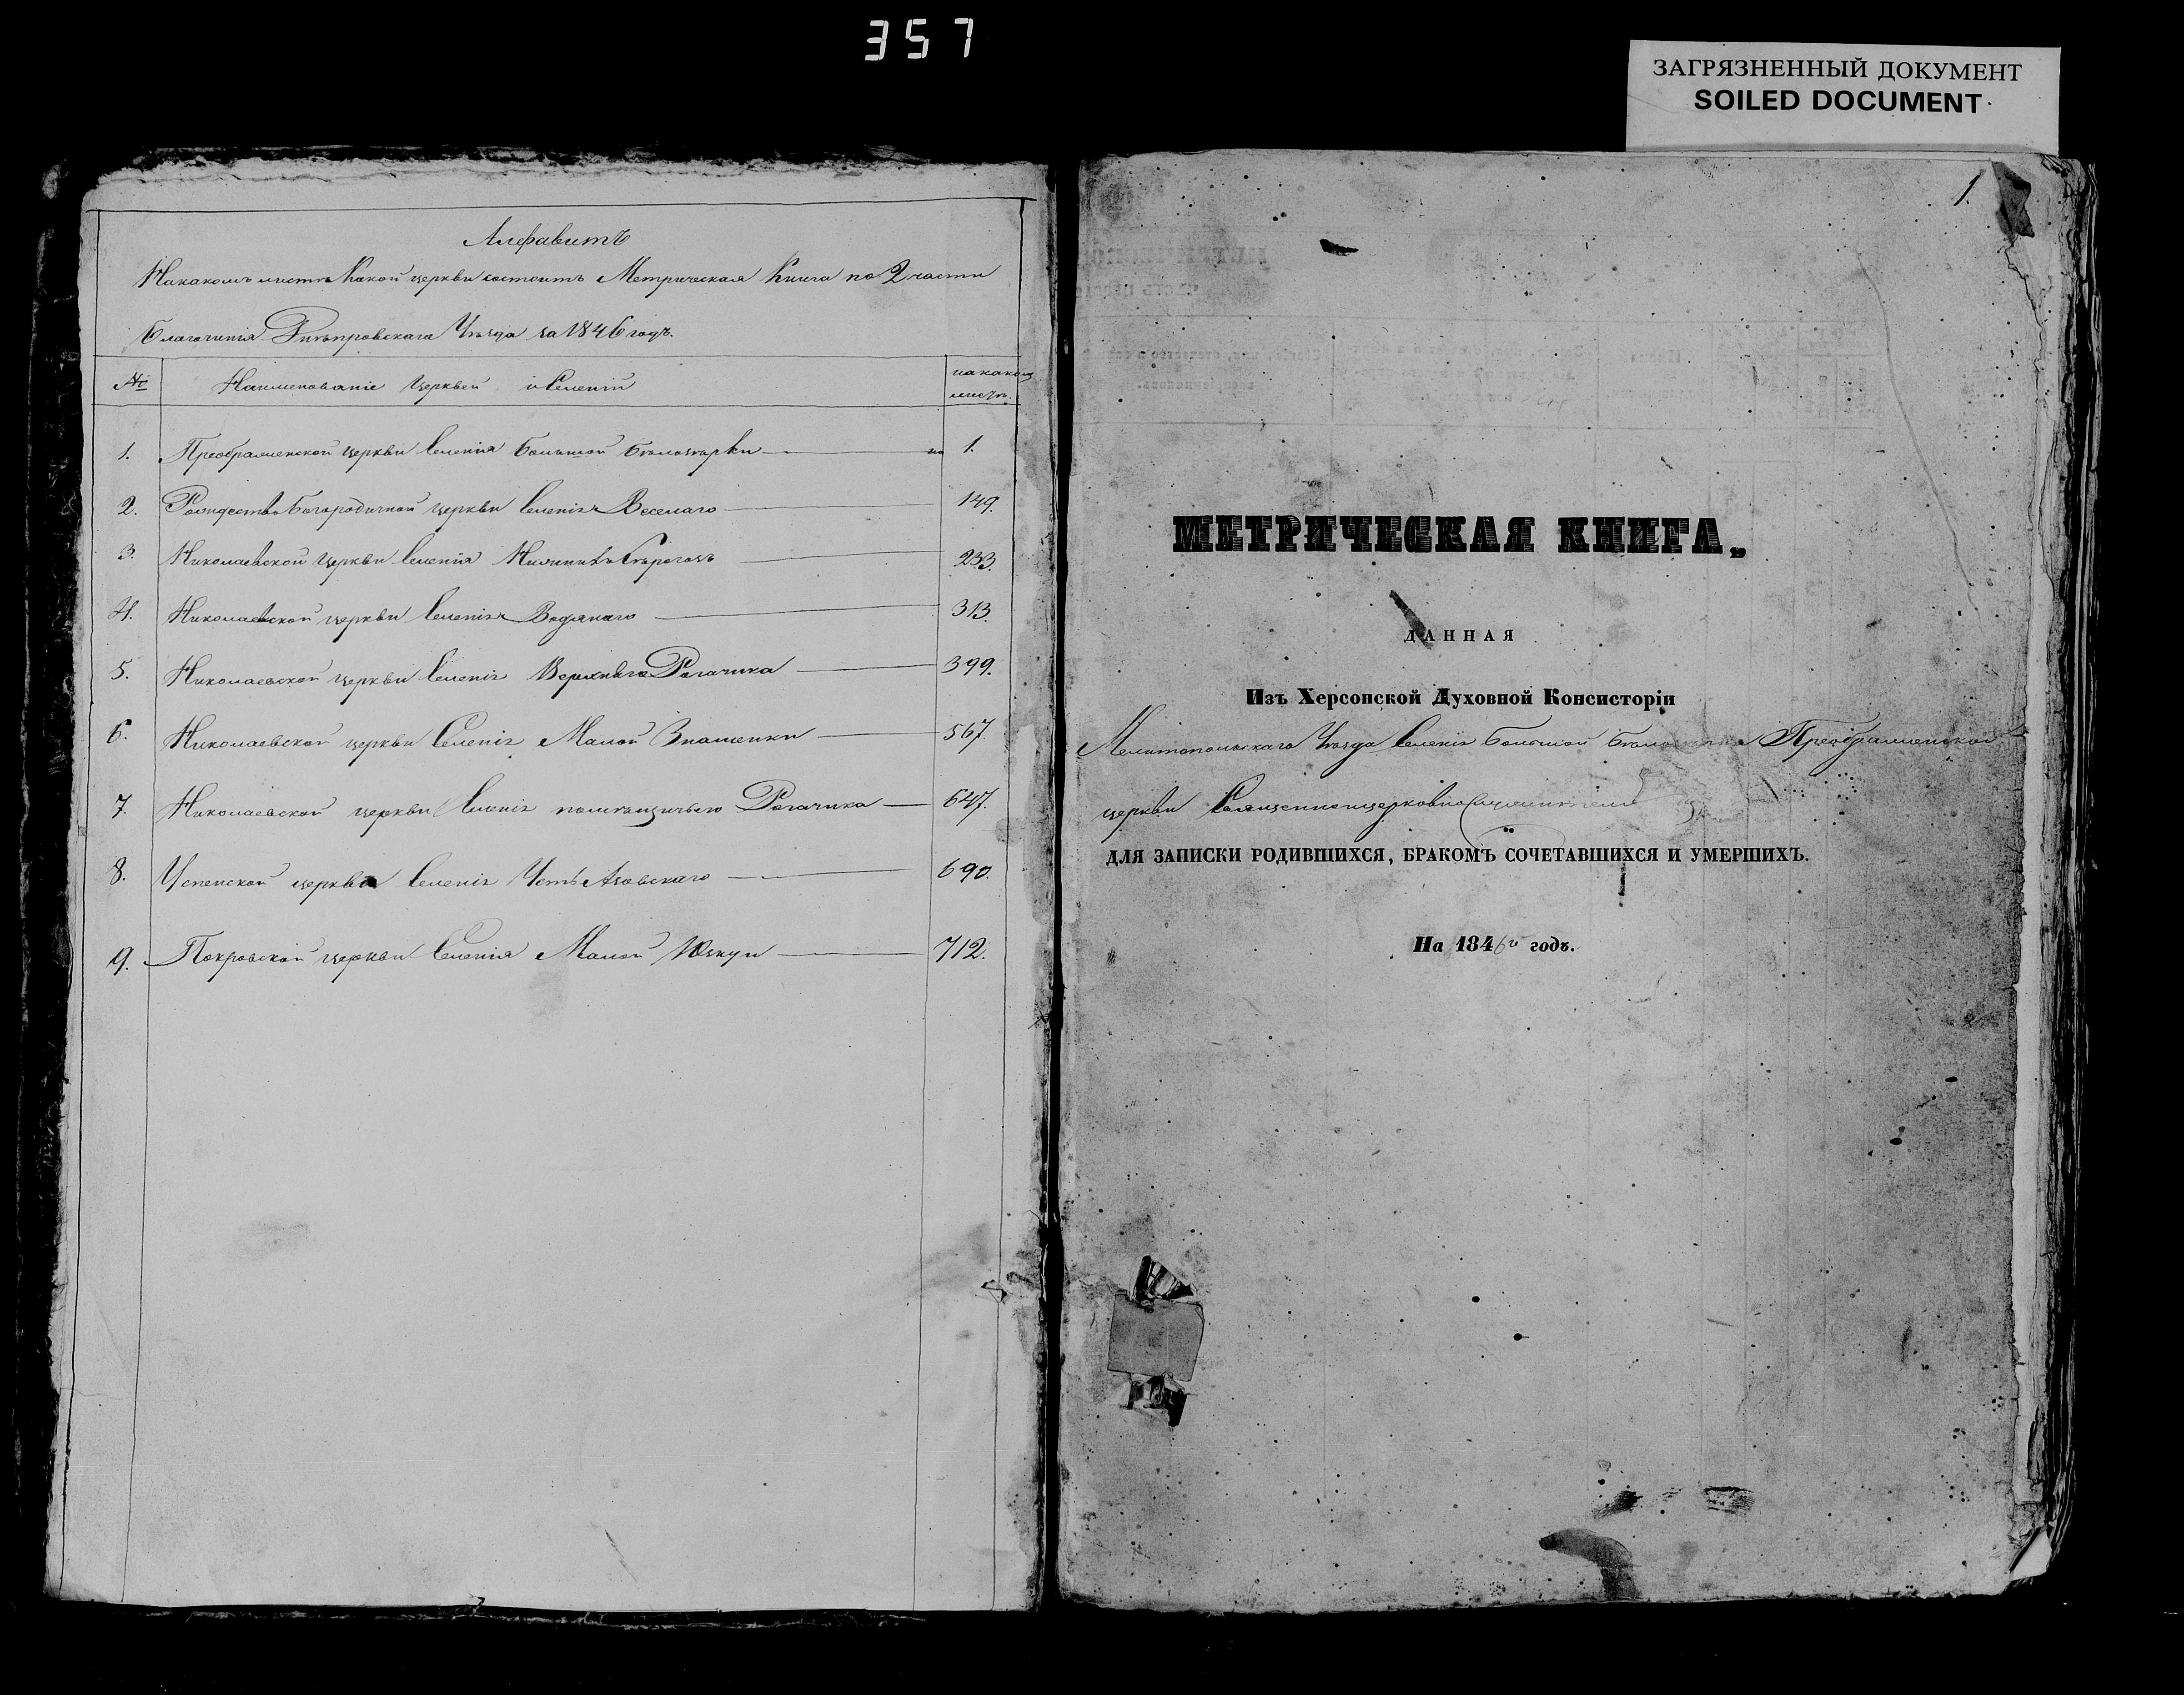 357
ЗАГРЯЗНЕННЫЙ ДОКУМЕНТ
SOILED DOCUMENT
Алфавитъ
На какомъ листѣ какой церкви состоитъ Метрическая Книга по 2 части
благочинія Днѣпровскаго Уѣзда за 1846 годъ.
№ Наименованіе Церквей и Селеній на какомъ листѣ.
1. Преображенской церкви Селенія Большой Бѣлозѣрки на 1.
2. Рождество Богородичной церкви Селенія Веселаго 149.
3. Николаевской церкви Селенія Нижнихъ Сѣрогозъ 233.
4. Николаевской церкви Селенія Водянаго 313.
5. Николаевской церкви Селенія Верхняго Рогачика 399.
6. Николаевской церкви Селенія Малой Знаменки 567.
7. Николаевской церкви Селенія помѣщичьего Рогачика 647.
8. Успенской церкви Селенія 690.
9. Покровской церкви Селенія Малой 712.
1.
МЕТРИЧЕСКАЯ КНИГА,
ДАННАЯ
Изъ Херсонской Духовной Консисторіи
Мелитопольскаго Уѣзда Селенія Большой Преображенской
церкви Священноцерковнослужителям
ДЛЯ ЗАПИСКИ РОДИВШИХСЯ, БРАКОМЪ СОЧЕТАВШИХСЯ И УМЕРШИХЪ.
На 1846й годъ.